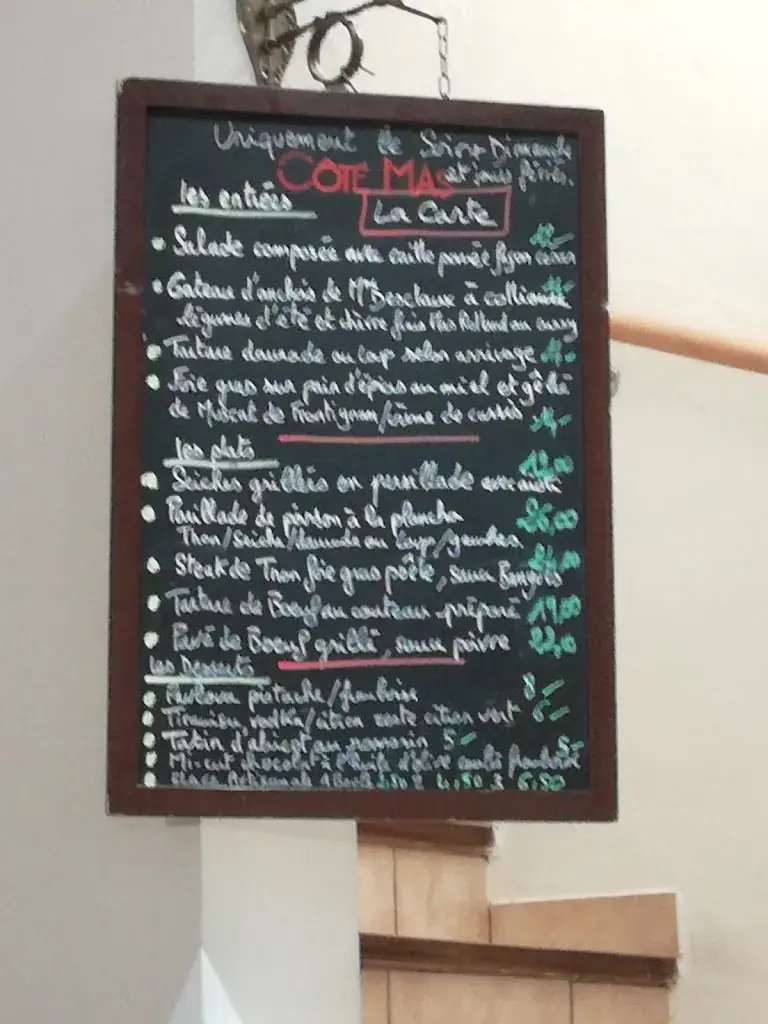 Uniquement le Soir, Dimanche
CÔTÉ MAS et jours fériés.
les entrées
La Carte
Salade composée avec caille panée façon
Gateau d'anchois de Mme Desclaux à collioure
légumes d'été et chèvre frais Mas Rolland au curry
Tartare daurade ou loup selon arrivage
Foie gras sur pain d'épices au miel et gelée
de Muscat de Frontignan/crème de cassis 14,-
les plats
Seiches grillées en persillade
Parillade de poisson à la plancha 26,00
Thon/Seiche/daurade ou loup/gambas
Steak de Thon foie gras poêlé, sauce Banyuls
Tartare de Boeuf au couteau préparé 19,00
Pavé de Boeuf grillé, sauce poivre
les Desserts
Pavlova pistache/framboise 8,-
Tiramisu vodka/citron zeste citron vert 6,-
Tatin d'abricot au romarin 5,-
Mi-cuit chocolat à l'huile d'olive coulis framboise
Glace Artisanale 1 Boule 2 4,50 3 6,50